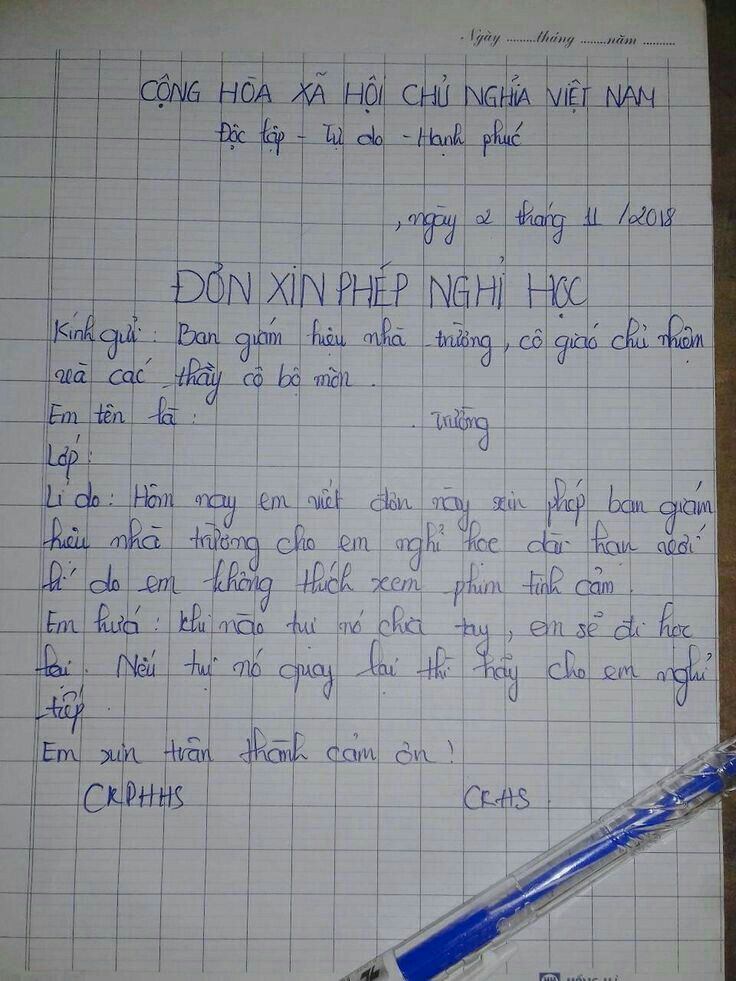 Ngày ........tháng ........năm ..........
CỘNG HÒA XÃ HỘI CHỦ NGHĨA VIỆT NAM
Độc lập - Tự do - Hạnh phúc
, ngày 2 tháng 11 /2018
ĐƠN XIN PHÉP NGHỈ HỌC
Kính gửi : Ban giám hiệu nhà trường, cô giáo chủ nhiệm
và các thầy cô bộ môn .
Em tên là : . trường
Lớp :
Lí do : Hôm nay em viết đơn này xin phép ban giám
hiệu nhà trường cho em nghỉ học dài hạn với
lí do em không thích xem phim tình cảm .
Em hứa : khi nào tụi nó chia tay , em sẽ đi học
lại . Nếu tụi nó quay lại thì hãy cho em nghỉ
tiếp .
Em xin trân thành cảm ơn !
CKPHHS CKHS .